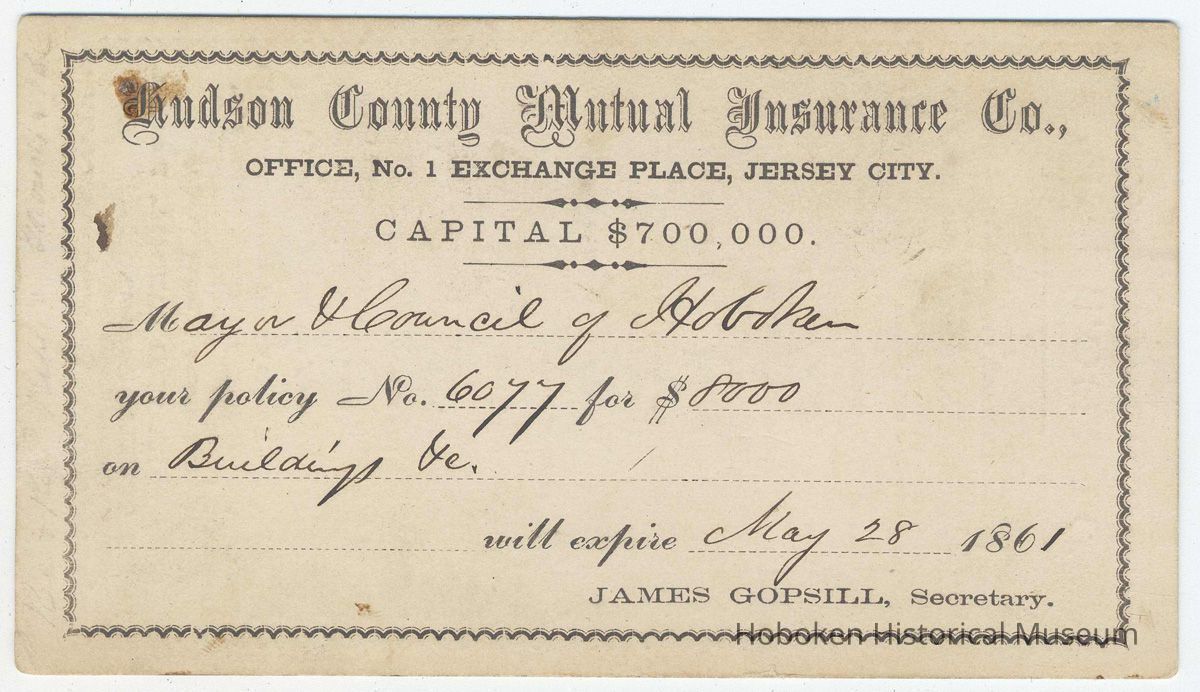 Hudson County Mutual Insurance Co.,
OFFICE, No. 1 EXCHANGE PLACE, JERSEY CITY.
CAPITAL $700,000.
Mayor & Council of Hoboken
your policy No. 6077 for $ 8000
on Buildings &c.
will expire May 28 1861
JAMES GOPSILL, Secretary.
Hoboken Historical Museum